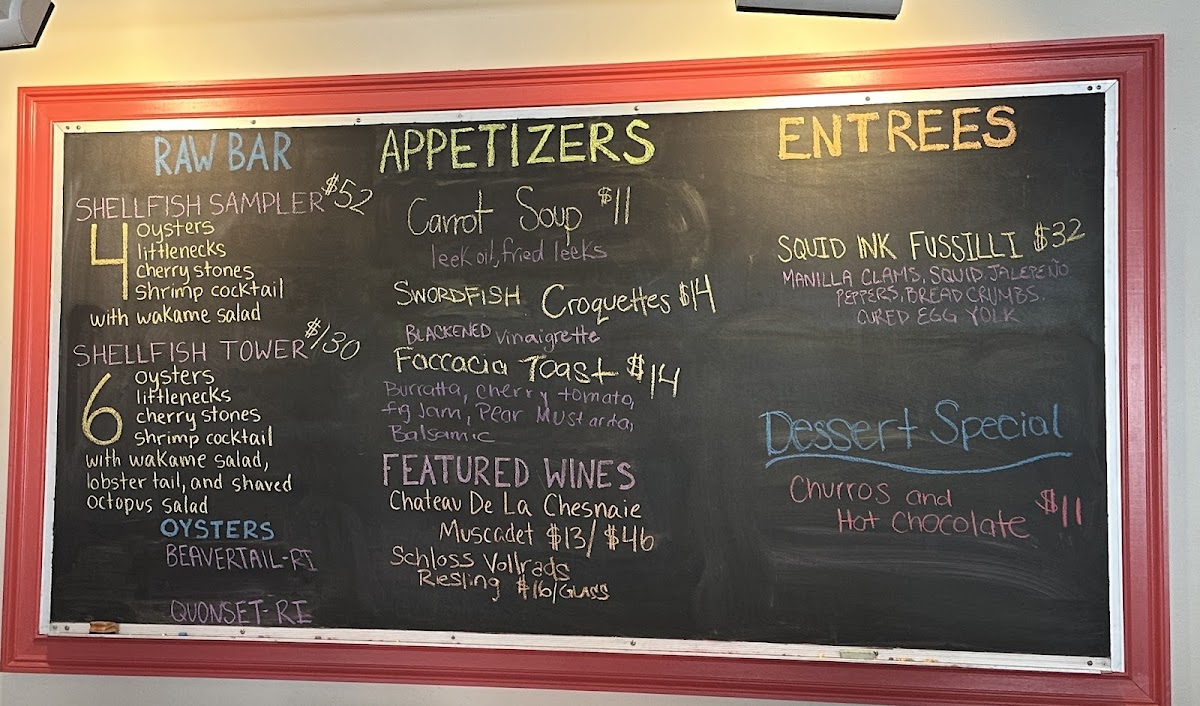 RAW BAR
SHELLFISH SAMPLER $52
4 oysters
littlenecks
cherry stones
Shrimp cocktail
with wakame salad
SHELLFISH TOWER $130
6 oysters
littlenecks
cherry stones
Shrimp cocktail
with wakame salad,
lobster tail, and shaved
octopus salad
OYSTERS
BEAVERTAIL-RI
QUONSET-RI
APPETIZERS
Carrot Soup $11
leek oil, fried leeks
SWORDFISH Croquettes $14
BLACKENED vinaigrette
Faccacia Toast $14
Burratta, cherry tomato,
fig Jam, Pear Mustarta,
Balsamic
FEATURED WINES
Chateau De La Chesnaie
Muscadet $13/$46
Schloss Vollrads
Riesling $16/GLASS
ENTREES
SQUID INK FUSSILLI $32
MANILLA CLAMS, SQUID, JALEPEÑO
PEPPERS, BREAD CRUMBS.
CURED EGG YOLK
Dessert Special
Churros and
Hot Chocolate $11